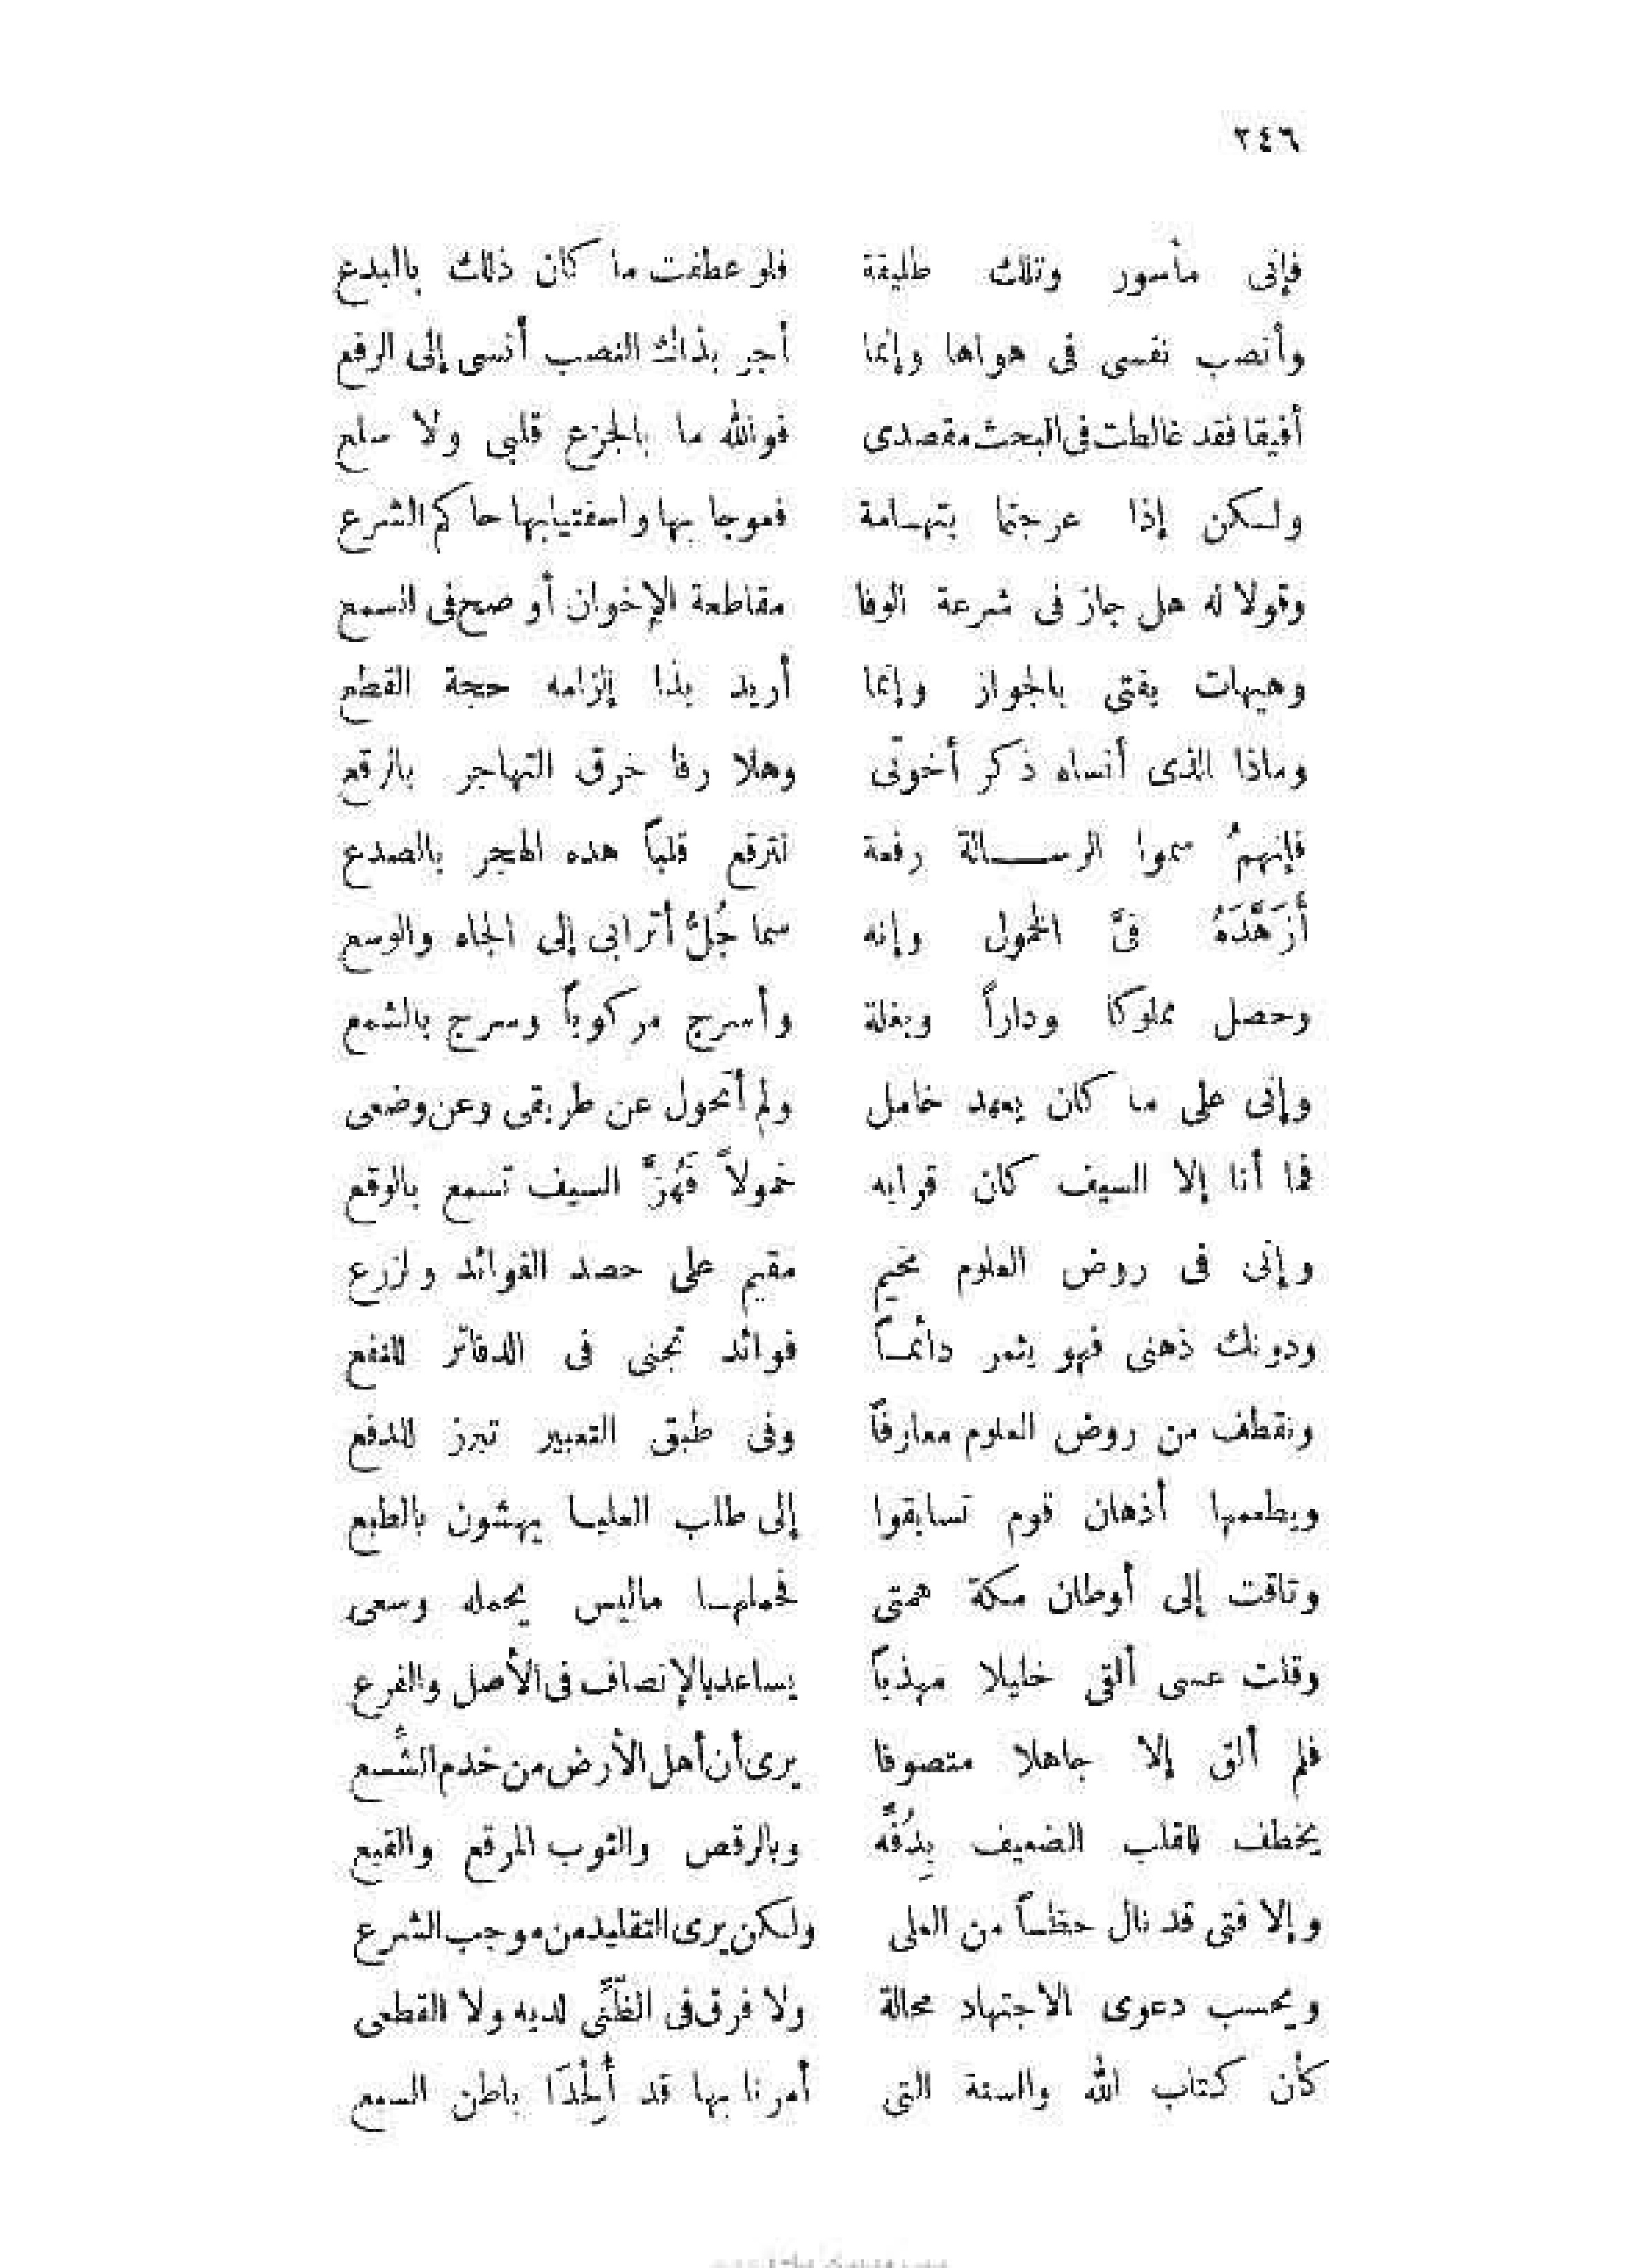 ٢٤٦
فإنى مأسور وتلك طليقة فلو عطفت ما كان ذلك بالبدع
وأنصب نفسى فى هواها وإنما أجر بذاك النصب أنسى إلى الرفع
أفيقا فقد غالطت فى البحث مقصدى فوالله ما بالجزع قلبى ولا سلع
ولكن إذا عرجتما بتهامة فعوجا بها واستفتيا بها حاكم الشرع
وقولا له هل جاز فى شرعة الوفا مقاطعة الإخوان أو صح فى السمع
وهيهات يفتى بالجواز وإنما أريد بذا إلزامه حجة القطع
وماذا الذى أنساه ذكر أخوتى وهلا رفا خرق التهاجر بالرقع
فإنهمُ سموا الرسالة رقعة لترقع قلباً هده الهجر بالصدع
أَزَهَّدَهُ فىَّ الخمول وإنه سما جُلُّ أترابى إلى الجاه والوسع
وحصل مملوكا وداراً وبغلة وأسرج مركوباً وسرج بالشمع
وإنى على ما كان يعهد خامل ولم أتحول عن طريقى وعن وضعى
فما أنا إلا السيف كان قرابه خمولاً فَهُزَّ السيف تسمع بالوقع
وإنى فى روض العلوم مخيم مقيم على حصد الفوائد ولزرع
ودونك ذهنى فهو يثمر دائماً فوائد تجنى فى الدفاتر للنفع
ونقطف من روض العلوم معارفاً وفى طبق التعبير تبرز للدفع
ويطعمها أذهان قوم تسابقوا إلى طلب العليا يهشون بالطبع
وتاقت إلى أوطان مكة همتى فحملها ماليس يحمله وسعى
وقلت عسى ألقى خليلا مهذباً يساعد بالإنصاف فى الأصل والفرع
فلم ألق إلا جاهلا متصوفا يرى أن أهل الأرض من خدم الشسع
يخطف للقلب الضعيف بِدُفِّه وبالرقص والثوب المرقع والقبع
وإلا فتى قد نال حظاً من العلى ولكن يرى التقليد من موجب الشرع
ويحسب دعوى الاجتهاد محالة ولا فرق فى الظَّنِّى لديه ولا القطعى
كأن كتاب الله والسنة التى أمرنا بها قد أُلْحِدَا باطن السبع